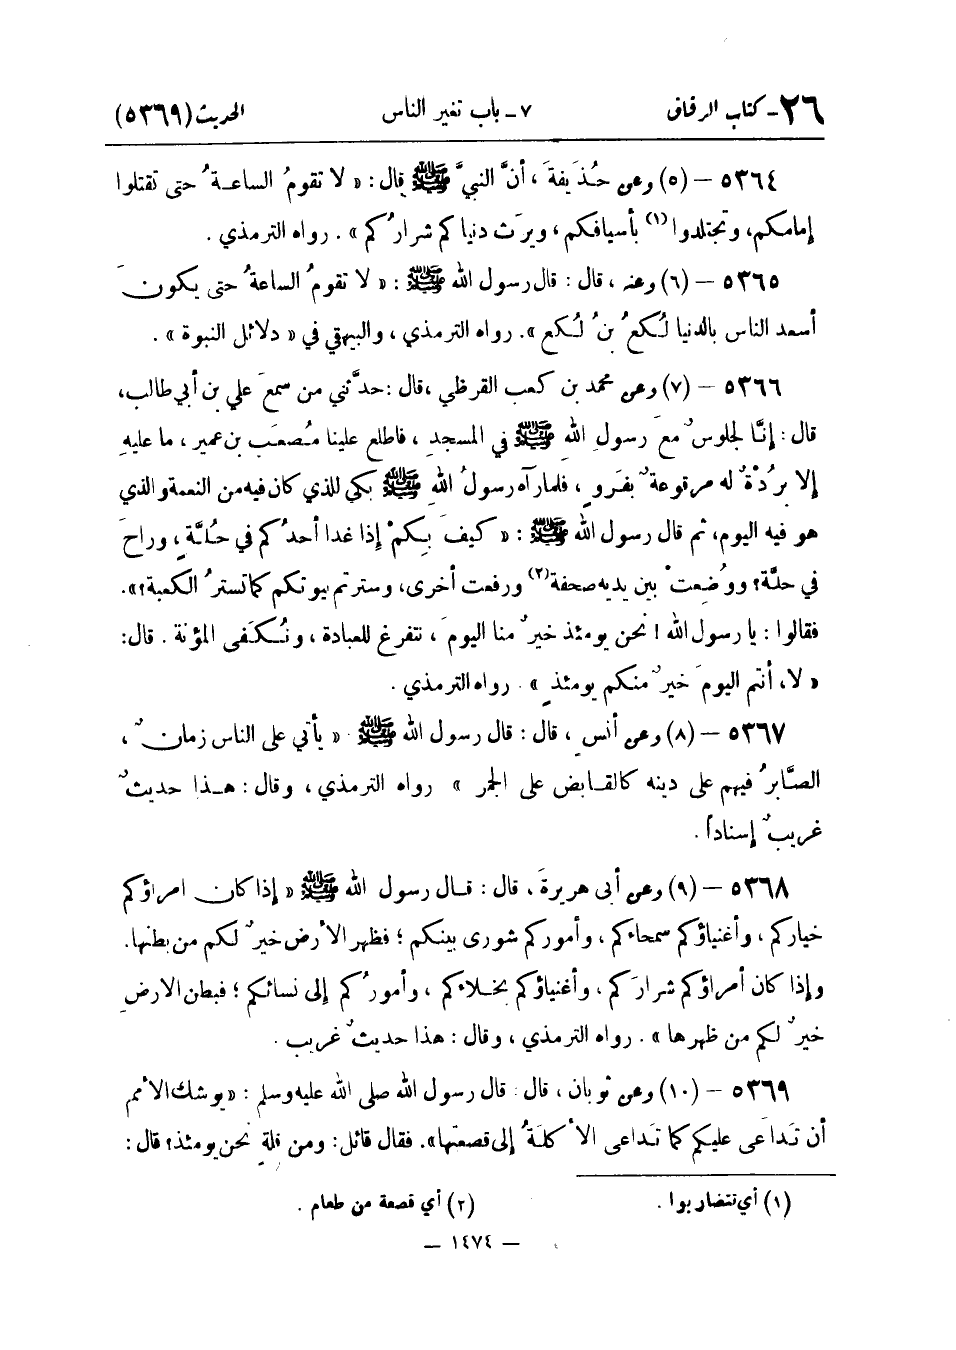 ٢٦ - كتاب الرقاق ٧ - باب تغير الناس الحديث (٥٣٦٩)
٥٣٦٤ – (٥) وعن حُذَيفةَ ، أنَّ النبيَّ ﷺ قال : « لا تقومُ الساعةُ حتى تقتلوا
إمامكم، وتجتلدوا (١) بأسيافكم ، ويرَث دنيا كم شرارُكم » . رواه الترمذي .
٥٣٦٥ – (٦) وعنه ، قال : قال رسول الله ﷺ : « لا تقومُ الساعةُ حتى يكونَ
أسعد الناس بالدنيا لُكعُ بنُ لُكع ». رواه الترمذي ، والبيهقي في « دلائل النبوة » .
٥٣٦٦ – (٧) وعن محمد بن كعب القرظي ،قال : حدَّثني من سمعَ علي بن أبي طالب،
قال : إنَّا لجلوسٌ معَ رسولِ اللهِ ﷺ في المسجدِ ، فاطلع علينا مُصعَب بن عمير ، ما عليهِ
إلا بُردْةٌ له مرقوعةٌ بفَروٍ ، فلما رآه رسولُ اللهِ ﷺ بكى للذي كان فيه من النعمة والذي
هو فيه اليوم، ثم قال رسول الله ﷺ : « كيفَ بكمْ إذا غدا أحدُكم في حُلَّةٍ ، وراحَ
في حلة؟ ووُضِعتْ بين يديه صحفة (٢) ورفعت أخرى، وسترتم بيوتكم كما تسترُ الكعبة؟».
فقالوا : يا رسول الله ! نحن يومئذ خيرٌ منا اليومَ ، نتفرغ للعبادة ، ونُكفى المؤنة . قال:
« لا، أنتم اليومَ خيرٌ منكم يومئذٍ » . رواه الترمذي .
٥٣٦٧ – (٨) وعن أنسٍ ، قال : قال رسول الله ﷺ « يأتي على الناس زمانٌ ،
الصَّابرُ فيهم على دينه كالقابض على الجمر » رواه الترمذي ، وقال : هذا حديثٌ
غريبٌ إسناداً .
٥٣٦٨ – (٩) وعن أبى هريرةَ ، قال : قال رسول الله ﷺ « إذا كان امراؤكم
خياركم ، وأغنياؤكم سمحاءكم ، وأموركم شورى بينكم ؛ فظهر الأرض خيرٌ لكم من بطنها.
وإذا كان أمراؤكم شرارَكم ، وأغنياؤكم بخلاءكم ، وأمورُكم إلى نسائكم ؛ فبطن الارضِ
خيرٌ لكم من ظهرها » . رواه الترمذي ، وقال : هذا حديثٌ غريب .
٥٣٦٩ – (١٠) وعن ثوبان ، قال : قال رسول الله صلى الله عليه وسلم : « يوشك الأمم
أن تَداعَى عليكم كما تَداعى الأكلةُ إلى قصعتها». فقال قائل: ومن قلةٍ نحن يومئذ؟ قال :
(١) أي تتضاربوا . (٢) أي قصعة من طعام .
– ١٤٧٤ –